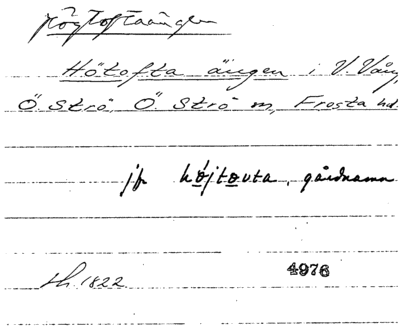 Högtoftaängen
Hötofta ängen i V. Vång
Ö. Strö, Ö. Strö sn, Frosta hd.
jfr højtovta, gårdnamn
LH. 1822
4976